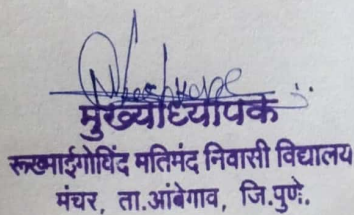 मुख्याध्यापक
रूख्माईगोविंद मतिमंद निवासी विद्यालय
मंचर, ता.आंबेगाव, जि.पुणे.